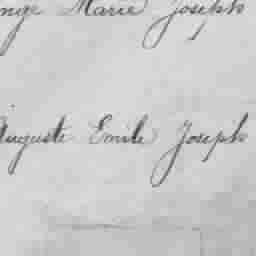 nge Marie Joseph
Auguste Emile Joseph